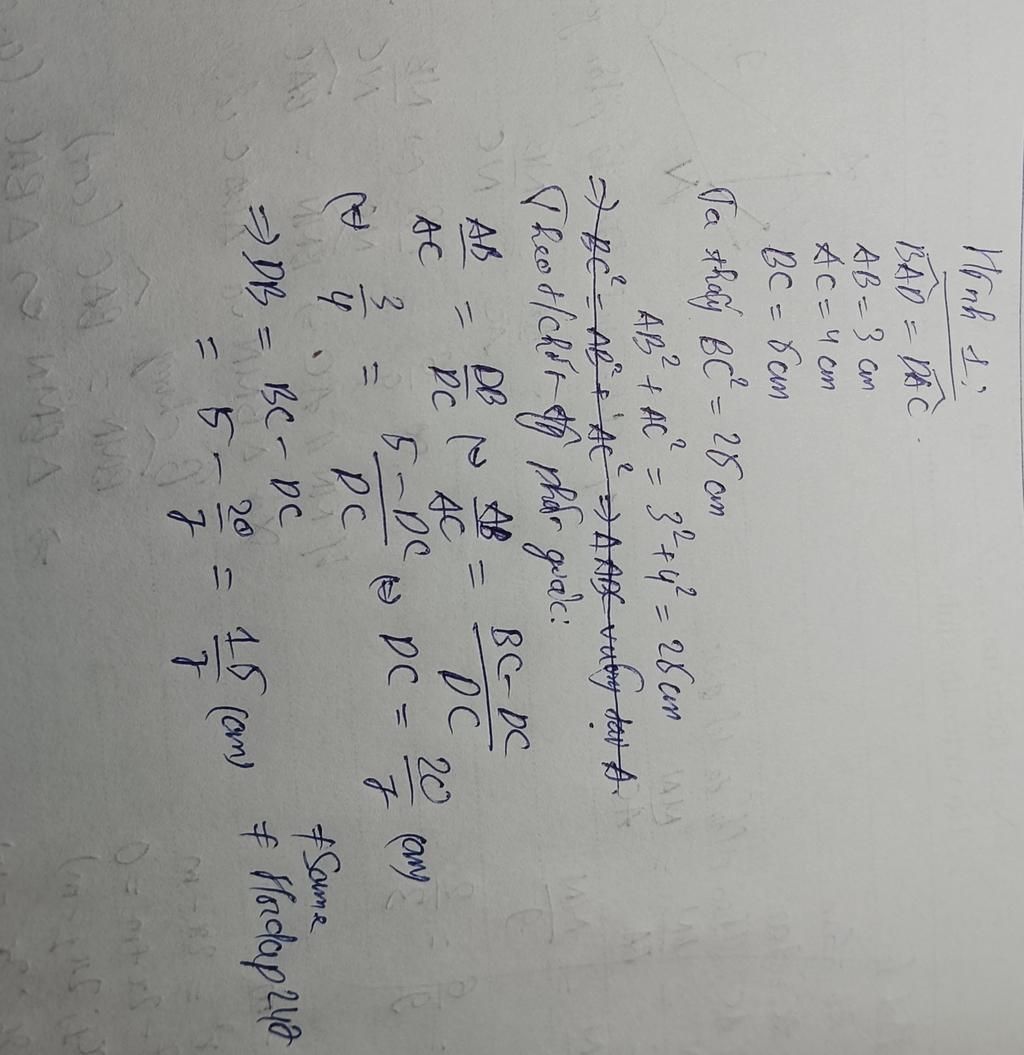 Hình 1:
BAD = DAC
AB = 3 cm
AC = 4 cm
BC = 5 cm
Ta thấy BC² = 25 cm
AB² + AC² = 3² + 4² = 25 cm
=> BC² = AB² + AC² => Δ ABC vuông tại A.
Theo t/chất phân giác:
AB/AC = DB/DC <=> AB/AC = BC - DC/DC
<=> 3/4 = 5 - DC/DC <=> DC = 20/7 (cm)
=> DB = BC - DC
= 5 - 20/7 = 15/7 (cm)
≠ Same
≠ Hoidap247